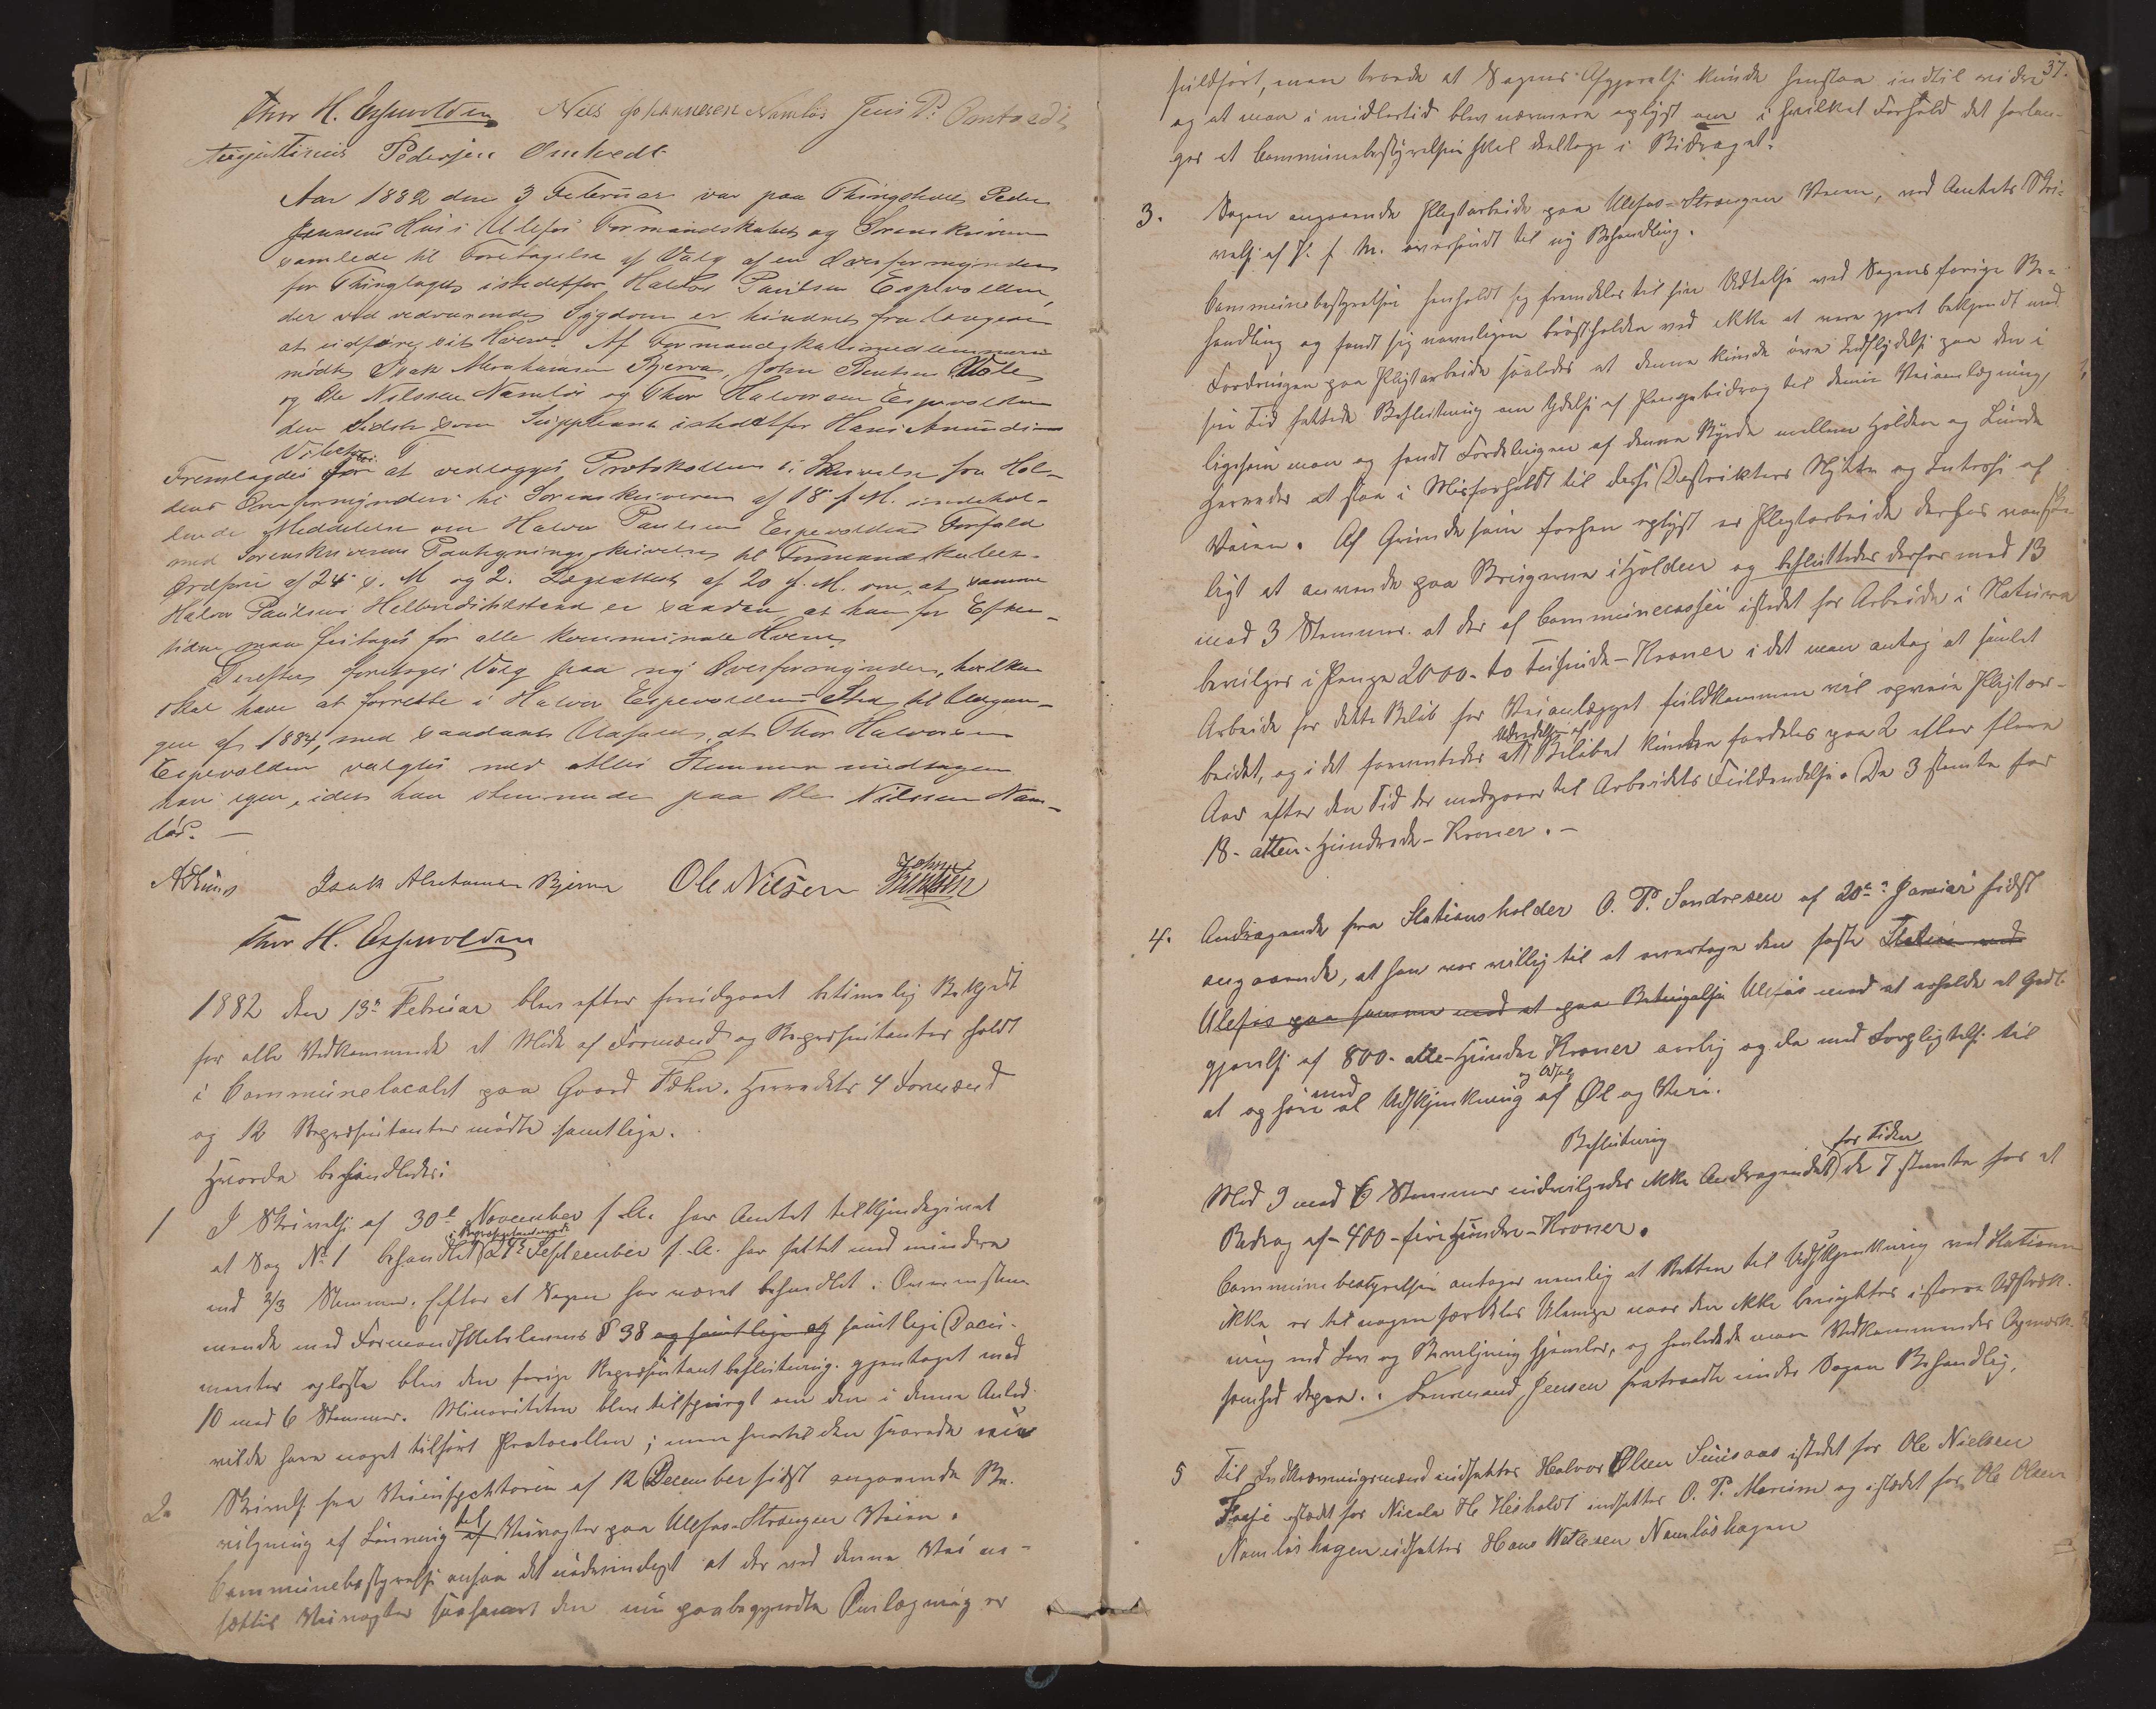 Thor H. Espevolden Nils Johannesen Namløs Jens P. Omtvedt
Augustinius Pedersen Omtvedt
Aar 1882 den 3 Februar var paa Thingstedet Peder
Jenssens Hus i Ulefos Formandskabet og Sorenskriveren
samlede til Foretagelse af Valg af en Overformynder
for Thinglaget istedetfor Halvor Paulsen Espevolden,
der ved vedvarende Sygdom er hindret fra længere
at udføre sit Hverv. Af Formandskabsmedlemmerne
mødte Isak Abrahamsen Bjerva, John Bentsen
og Ole Nilssen Namløs og Thor Halvorsen Espevolden
den sidste som Suppleant istedetfor Hans Amundsen
Fremlagdes for at vedlægges Protokollen 1: Skrivelse fra Hol-
dens Overformynderi til Sorenskriveren af 18 f. M. indehol-
dende Meddelelse om Halvor Paulsen Espevoldens Forfald
med Sorenskriverens Paategningsskrivelse til Formandskabets
Ordfører af 24 s. M og 2. Lægeattest af 20 f. M. om, at samme
Halvor Paulsens Helbredstilstand er saadan, at han for Efter-
tiden maa fritages for alle kommunale Hverv.
Derefter foretoges Valg paa ny Overformynder, hvilken
skal have at forrette i Halvor Espevoldens Sted til Udgan-
gen af 1884, med saadant Udfald, at Thor Halvorsen
Espevolden valgtes med alles Stemmer undtagen
hans egen, idet han stemmede paa Ole Nilssen Nam-
løs. —
Isak Abrahamsen Bjerva Ole Nilsen John Bentsen
Thor H. Espevolden
1882 den 13de Februar blev efter foregaaet betimelig Bekjendt
for alle Vedkommende et Møde af Formænd og Repræsentanter holdt
i Communelocalet paa Gaard Fæhn. Herredets 4 Formænd
og 12 Repræsentanter mødte samtlige.
Hvorda behandledes:
1 I Skrivelse af 30te November f. A. har Amtet tilkjendegivet
at Sag No 1 behandlet i Repræsentantmøde 27de September f. A. har fattet med mindre
end 2/3 Stemmer. Efter at Sagen har været behandlet i Overensstem-
mende med Formandskabslovens § 38 og samtlige af samtlige Docu-
menter oplæste blev den forrige Repræsentantbeslutning gjentaget med
10 mod 6 Stemmer. Minoriteten blev tilspurgt om den i denne Anled.
vilde have noget tilført Protocollen; men hvortil den svarede nei
2. Skrivelse fra Veiinspektøren af 12 December sidst angaaende Be-
vilgning af Lønning til af Veivogter paa Ulefos-Strengen Veien.
Communebestyrelse ansaa det nødvendigt at der ved denne Vei an-
sættes Veivogter saasnart den nu paabegyndte Omlægning er
37.
fuldført, men troede at Sagens Afgjørelse kunde henstaa indtil videre
og at man i midlertid blev nærmere oplyst om i hvilket Forhold det forlan-
ges at Communebestyrelsen skal deeltage i Bidraget.
3. Sagen angaaende Pligtarbeide paa Ulefos-Strengen Veien, ved Amtets Skri-
velse af f. M. oversendt til ny Behandling.
Communebestyrelsen henholdt sig fremdeles til sin Udtalelse ved Sagens forrige Be-
handling og fandt sig navnligen brøstholden ved ikke at være gjort bekjendt med
Fordringen paa Pligtarbeide saaledes at denne kunde øve Indflydelse paa den i
sin Tid fattede Beslutning om Ydelse af Pengebidrag til denne Veiomlægning,
ligesom man og fandt Fordelingen af denne Byrde mellem Holden og Lunde
Herreder at staa i Misforhold til disse Distrikters Nytte og Interesse af
Veien. Af Grunde som forhen oplyst er Pligtarbeide derhos vanske-
ligt at anvende paa Brugerne i Holden og besluttedes derfor med 13
mod 3 Stemmer at der af Communecassen istedet for Arbeide i Natura
bevilges i Penge 2000 - to Tusinde - Kroner i det man antog at saavel
Arbeide for dette Beløb for Veianlægget fuldkommen vil opveie Pligtar-
beidet, og i det forventedes at Udredelsen af Beløbet kunde fordeles paa 2 eller flere
Aar efter den Tid der medgaaer til Arbeidets Fuldendelse. De 3 stemte for
18 - atten - Hundrede - Kroner. —
4. Andragende fra Stationsholder O. P. Sondresen af 20de Januar sidst
angaaende, at han var villig til at overtage den faste Station ved
Ulefos paa samme med at paa Betingelse Ulefos mod at erholde et Godt-
gjørelse af 800 - atte-Hundre Kroner aarlig og da med Forpligtelse til
at ophøre med al Udskjenkning og Udsalg af Øl og Vin.
Beslutning
Med 9 mod 6 Stemmer indvilgedes ikke Andragendet for Tiden de 7 stemte for et
Bidrag af - 400 - fire Hundre - Kroner.
Communebestyrelsen antager nemlig at Retten til Udskjenkning ved Stationen
ikke er til nogen særdeles Ulempe naar den ikke benyttes i større Udstræk-
ning end Lov og Bevilgning hjemler, og henledede man Vedkommendes Opmærk-
somhed derpaa. Formand Jensen fratraadte under Sagens Behandling.
5 Til Indkræmningsmænd indsattes Halvor Olsen Suusaas istedet for Ole Nielsen
istedet for Nicolai H. Heisholdt indsattes O. P. Moreim og istedet for Ole Olsen
Namløshagen indsattes Hans Wetlesen Namløshagen